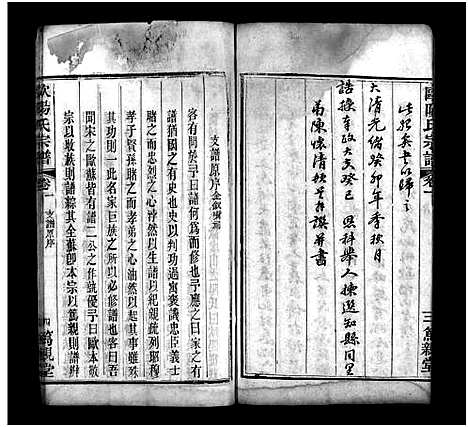 歐陽氏宗譜
卷一
三 萬親堂
此報矣十以歸之
大清光緒癸卯年季秋月
誥授奉政大夫癸巳 恩科舉人揀選知縣同里
弟陳懷清秋平撰并書
支譜原序
客有問於予曰譜何爲而修予應之曰家之有
譜猶國之有史也史以判功過寓褒譏忠臣義士
睹之而忠君之心悖然以生譜以紀親疏列耶穆
孝子賢孫睹之而孝弟之心油然以起其事雖殊
其功則一此名家巨族之所以必修譜也客曰吾
聞宋之歐蘇皆有譜二公之作孰優予曰歐本敬
宗以收族則譜其全蘇卽本宗以篤親則譜辨
歐陽氏宗譜
卷一
支譜原序
四 萬親堂